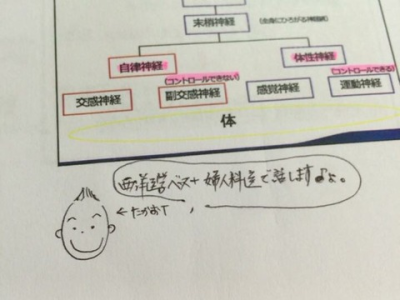 末梢神経
(全身にひろがる神経網)
自律神経
体性神経
(コントロールできない)
(コントロールできる)
交感神経
副交感神経
感覚神経
運動神経
体
西洋医学ベスト 婦人科医で話しますよ。
←たかおT